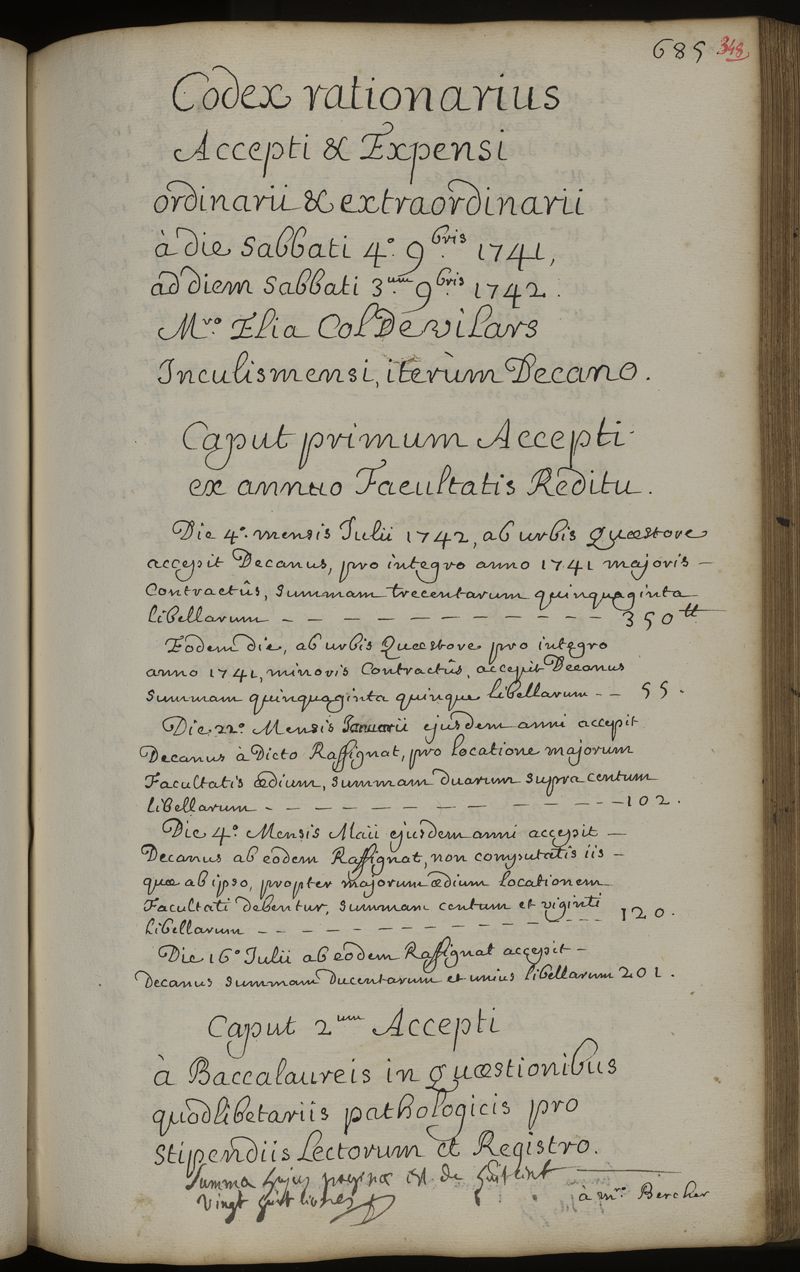 685 348
Codex rationarius
Accepti & Expensi
ordinarii & extraordinarii
à die Sabbati 4°. 9bris 1741,
ad diem Sabbati 3um 9bris 1742.
Mro Elia Col De vilars
Inculismensi, iterùm Decano.
Caput primum Accepti
ex annuo Facultatis Reditu.
Die 4°. mensis Julii 1742, ab urbis Quæstore
accepit Decanus, pro integro anno 1741 majoris –
Contractûs, summam trecentarum quinquaginta
libellarum – – – – – – – – – – – 350tt
Eodem die, ab urbis Quæstore pro integro
anno 1741, minoris Contractûs, accepit Decanus
summam quinquaginta quinque libellarum – – 55.
Die 22° Mensis Januarii ejusdem anni accepit
Decanus à Dicto Raffignat, pro locatione majorum
Facultatis ædium, summam duarum supra centum
libellarum – – – – – – – – – – – – 102.
Die 4° Mensis Maii ejusdem anni accepit –
Decanus ab eodem Raffignat, non computatis iis –
quæ ab ipso, propter majorum ædium locationem
Facultati debentur, summam centum et viginti
libellarum – – – – – – – – – – – – 120.
Die 16° Julii ab eodem Raffignat accepit –
Decanus summam ducentarum et unius libellarum 201.
Caput 2um Accepti
à Baccalaureis in quæstionibus
quodlibetariis pathologicis pro
stipendiis Lectorum et Registro.
Summa hujus paginæ est de huit cent
vingt huit livres
à mro Bercher